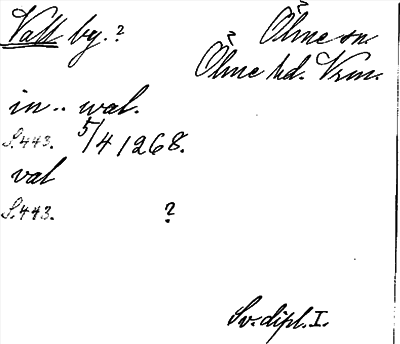 Vall by.?
Ölme sn.
Ölme hd. Vrm.
in.. wal.
S.443. 5/4 1268.
val
S.443. ?
Sv. dipl. I.